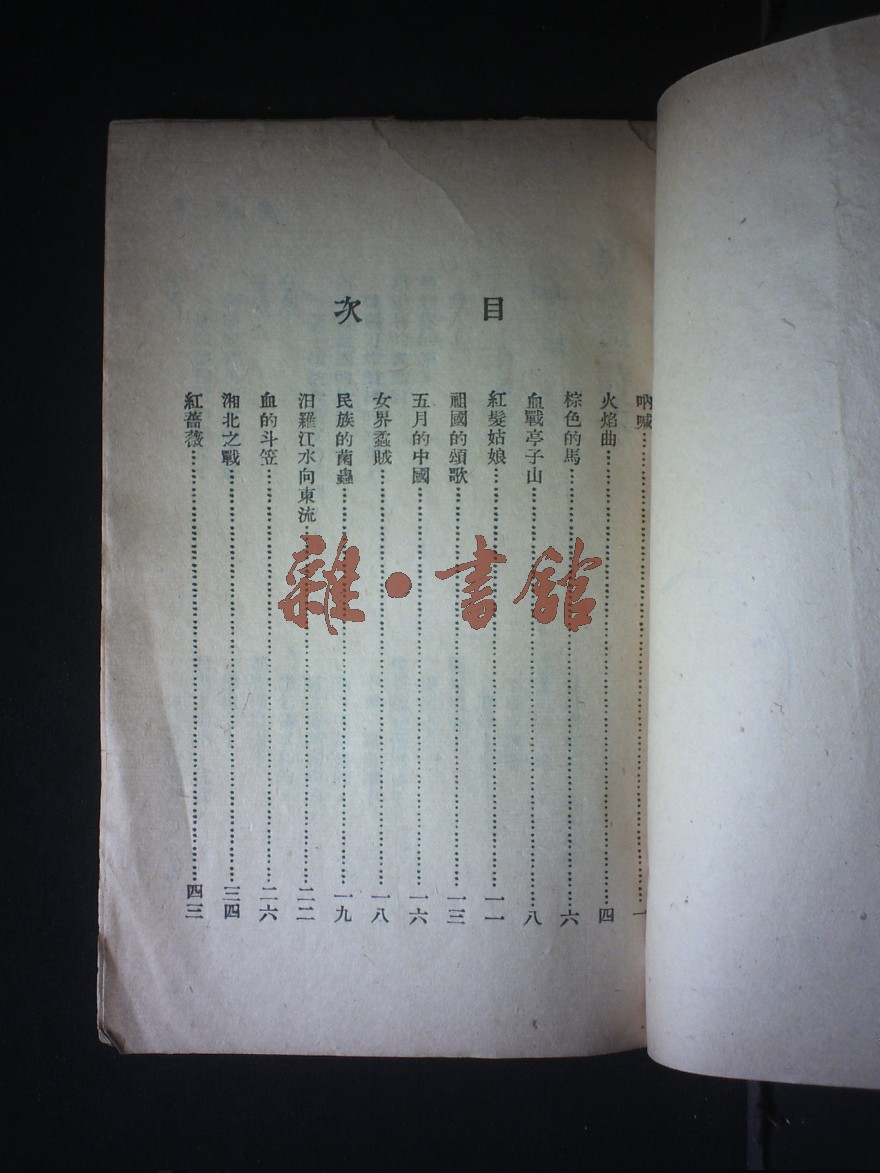 目次
吶喊……一
火焰曲……四
棕色的馬……六
血戰亭子山……八
紅髮姑娘……一一
祖國的頌歌……一三
五月的中國……一六
女界蟊賊……一八
民族的蘭蟲……一九
汨羅江水向東流……二二
血的斗笠……二六
湘北之戰……三四
紅薔薇……四三
雜·書館